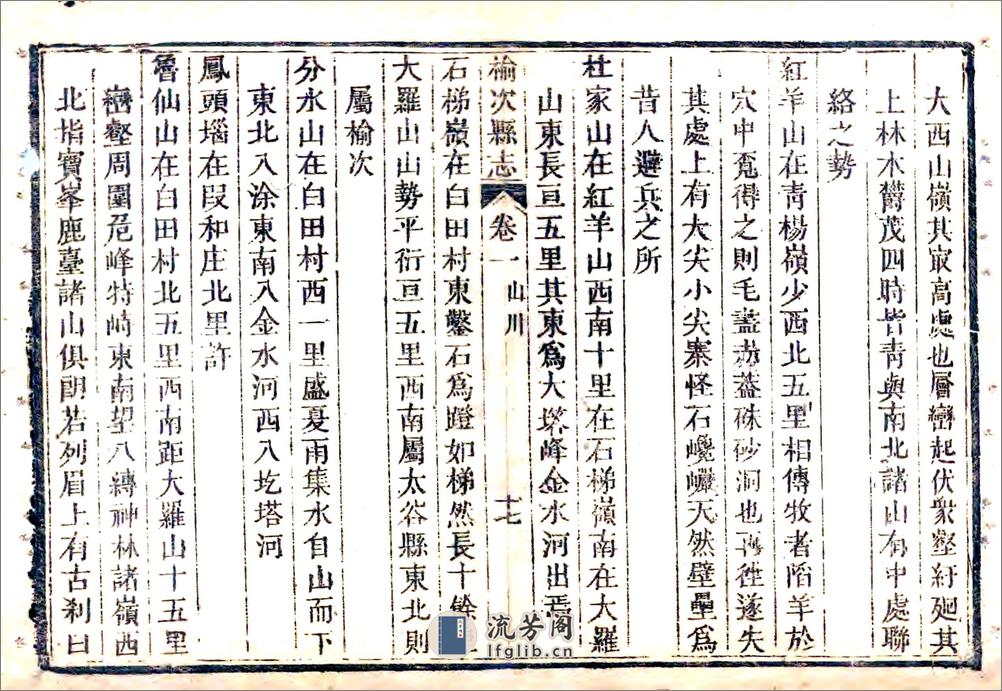 大西山嶺其㝡高處也層巒起伏衆壑紆廻其
上林木欝茂四時皆青與南北諸山有中處聯
絡之勢
紅羊山在青楊嶺少西北五里相傳牧者陷羊於
穴中覓得之則毛盡赤蓋硃砂洞也再往遂失
其處上有大尖小尖寨怪石巉巗天然壁壘爲
昔人避兵之所
杜家山在紅羊山西南十里在石梯嶺南在大羅
山東長亘五里其東爲大塔峰金水河出焉
榆次縣志 卷一 山川 十七
石梯嶺在白田村東鑿石爲蹬如梯然長十餘
大羅山山勢平衍亘五里西南屬太谷縣東北則
屬榆次
分水山在白田村西一里盛夏雨集水自山而下
東北入涂東南入金水河西入圪塔河
鳳頭堖在叚和庄北里許
魯仙山在白田村北五里西南距大羅山十五里
巒壑周圍危峰特峙東南望八縛神林諸嶺西
北指寳峯鹿臺諸山俱朗若列眉上有古刹曰
流芳阁
lfglib.cn